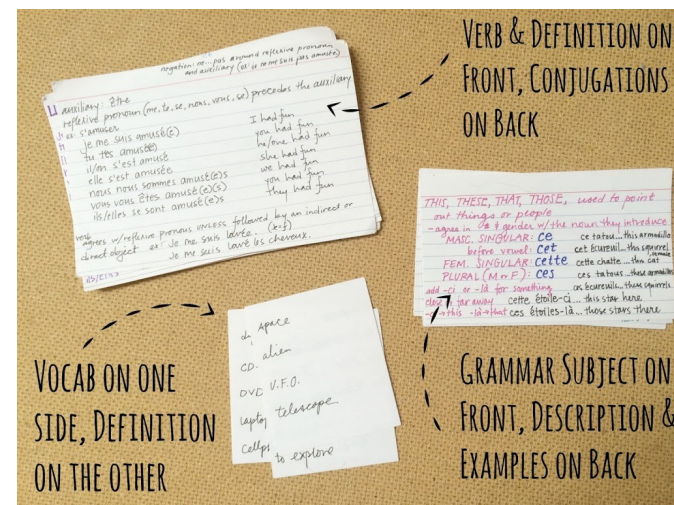 VERB & DEFINITION ON
FRONT, CONJUGATIONS
ON BACK
negation: ne...pas around reflexive pronoun
and auxiliary (ex: je ne me suis pas amusée)
auxiliary: être
reflexive pronoun (me, te, se, nous, vous, se) precedes the auxiliary
ex: s'amuser
je me suis amusé(e) I had fun
tu t'es amusé(e) you had fun
il/on s'est amusé he/one had fun
elle s'est amusée she had fun
nous nous sommes amusé(e)s we had fun
vous vous êtes amusé(e)(s) you had fun
ils/elles se sont amusé(e)s they had fun
verb
agrees w/reflexive pronoun UNLESS followed by an indirect or
direct object ex: Je me suis lavée.
Je me suis lavé les cheveux.
THIS, THESE, THAT, THOSE, used to point
out things or people
-agree in # & gender w/ the noun they introduce
MASC. SINGULAR: ce ce tatou...this armadillo
before vowel: cet cet écureuil...this squirrel
FEM. SINGULAR: cette cette chatte...this cat
female
PLURAL (M or F): ces ces tatous...these armadillos
ces écureuils...these squirrels
add -ci or -là for something
close or far away cette étoile-ci... this star here
-ci→this -là→that ces étoiles-là... those stars there
space
CD. alien
DVD U.F.O.
laptop telescope
to explore
VOCAB ON ONE
SIDE, DEFINITION
ON THE OTHER
GRAMMAR SUBJECT ON
FRONT, DESCRIPTION &
EXAMPLES ON BACK